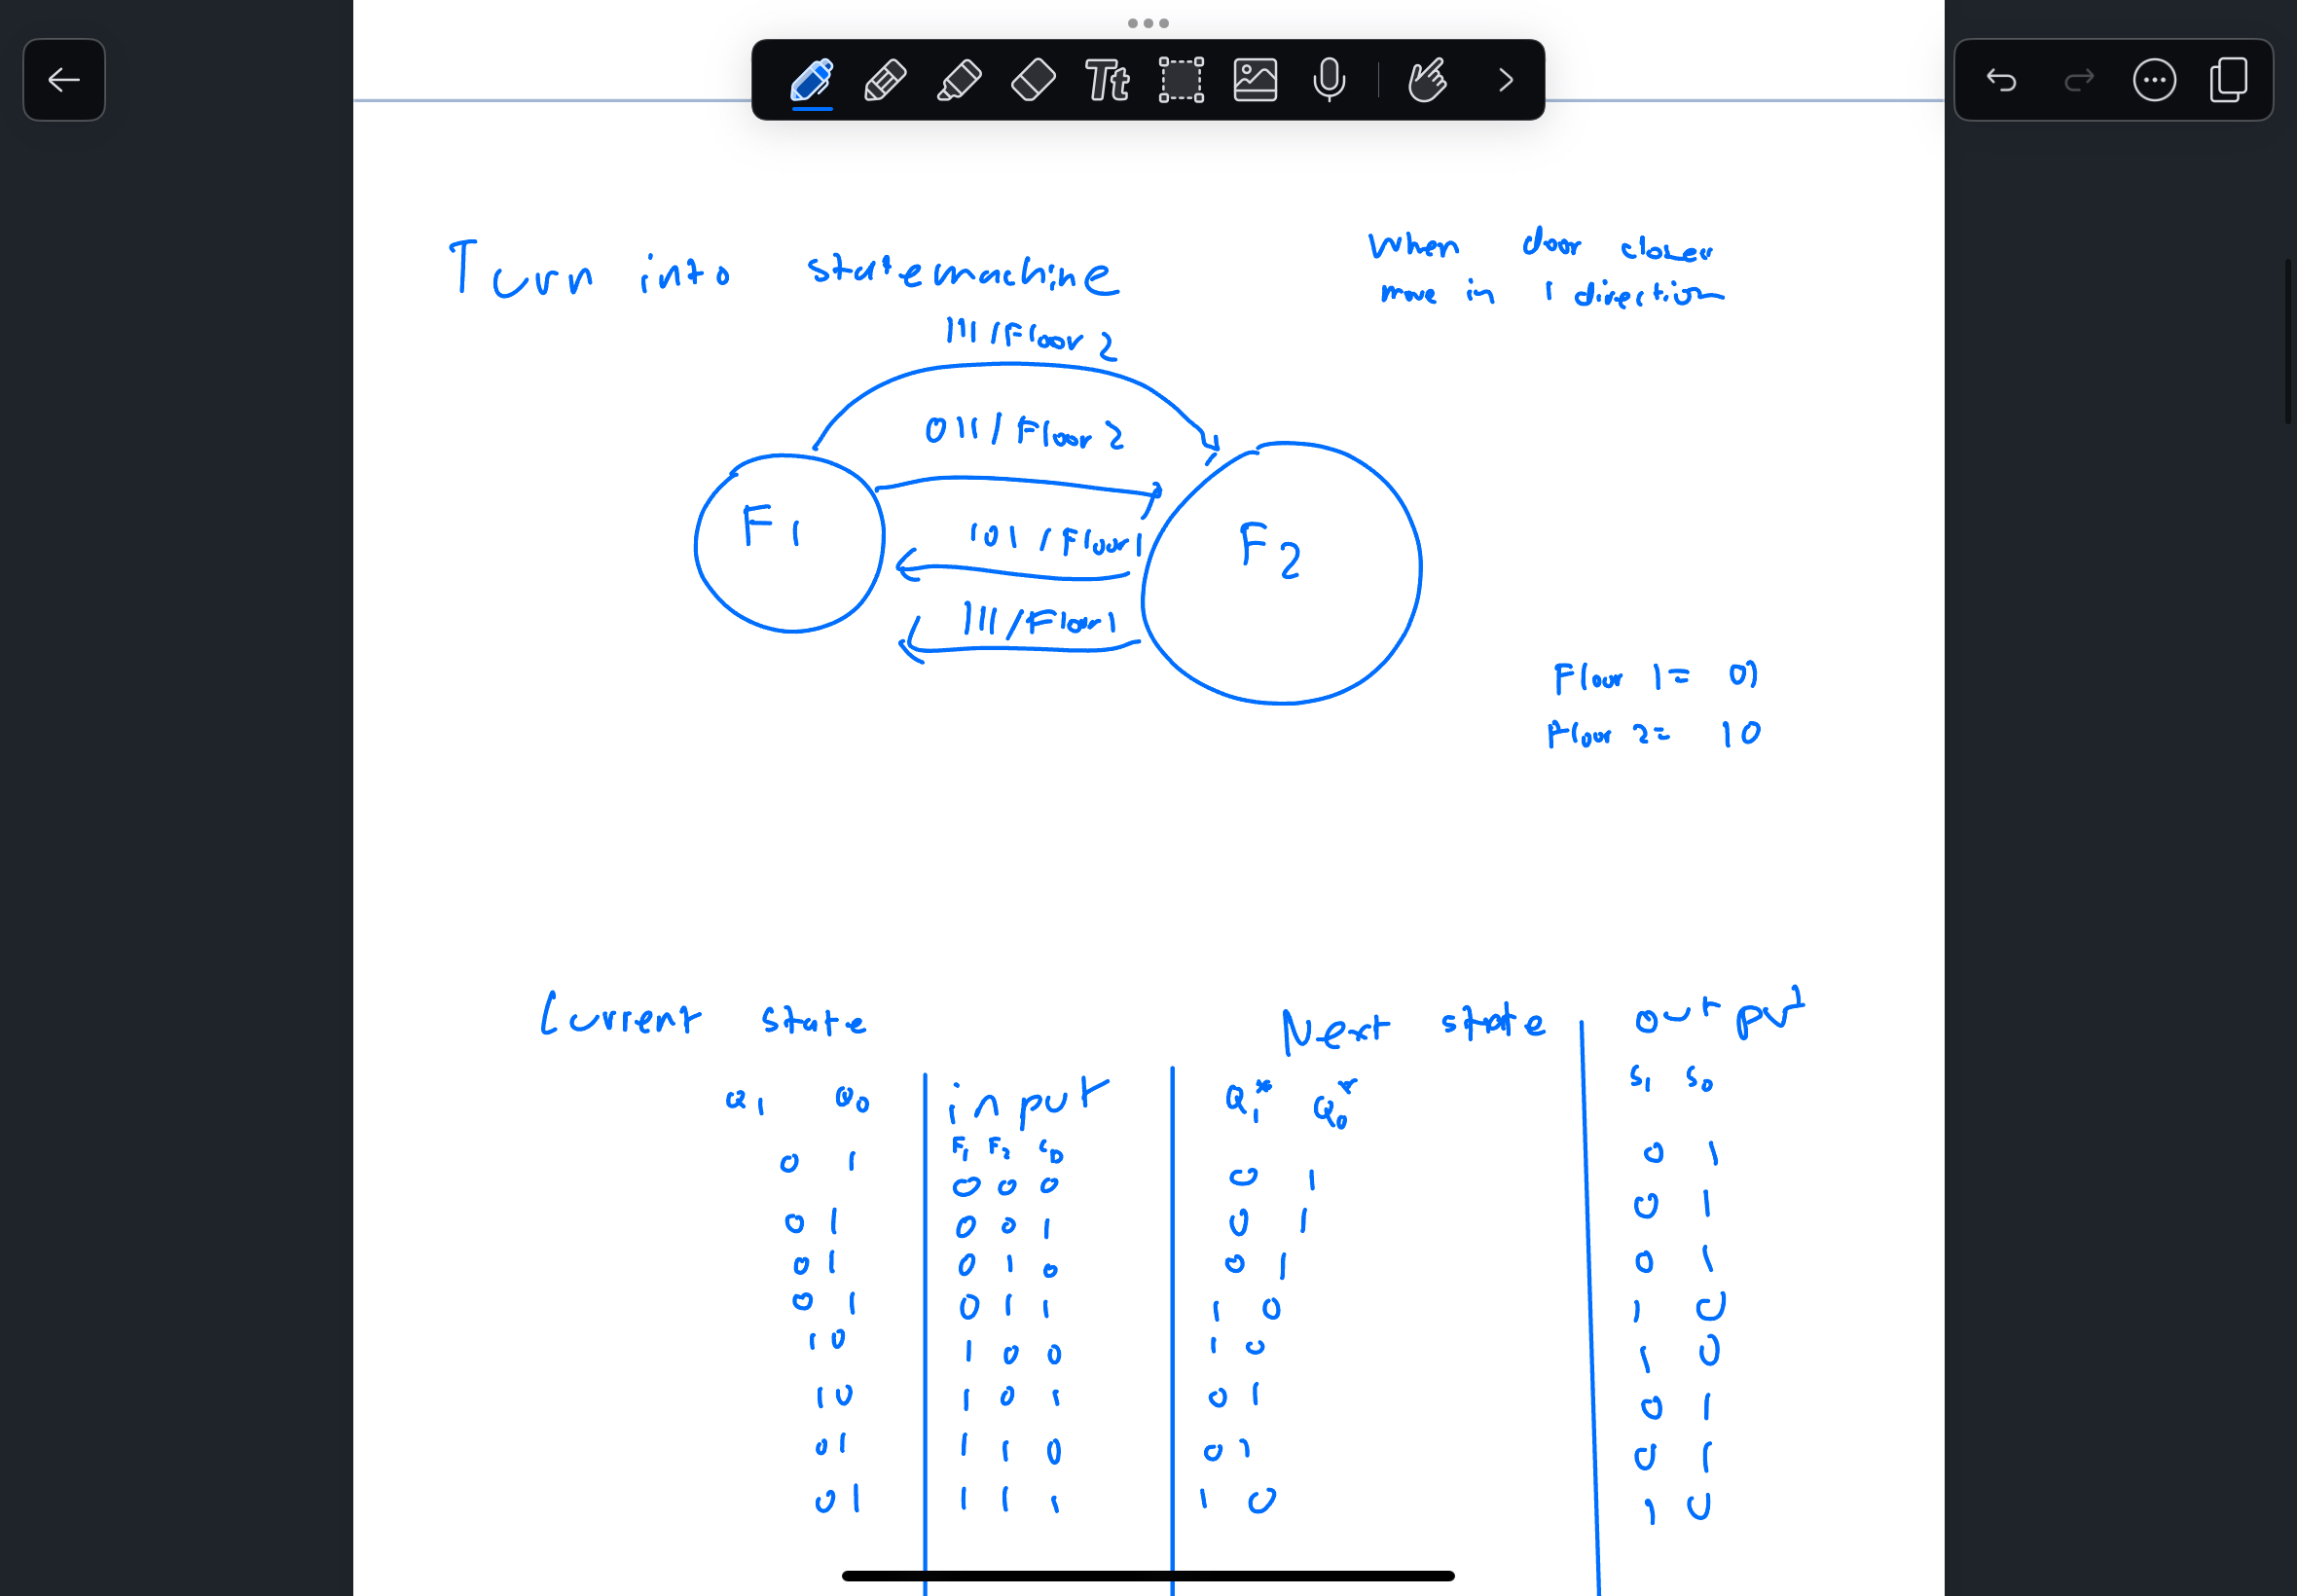 Tt
Turn into statemachine
When door closes
move in 1 direction
111/Floor 2
011/Floor 2
F1
101/Floor1
F2
111/Floor1
Floor 1= 01
Floor 2= 10
Current state
Next state
output
Q1 Q0
input
Q1* Q0*
S1 S0
F1 F2 CD
0 1 0 0 0 0 1 0 1
0 1 0 0 1 0 1 0 1
0 1 0 1 0 0 1 0 1
0 1 0 1 1 1 0 1 0
1 0 1 0 0 1 0 1 0
1 0 1 0 1 0 1 0 1
0 1 1 1 0 0 1 0 1
0 1 1 1 1 1 0 1 0